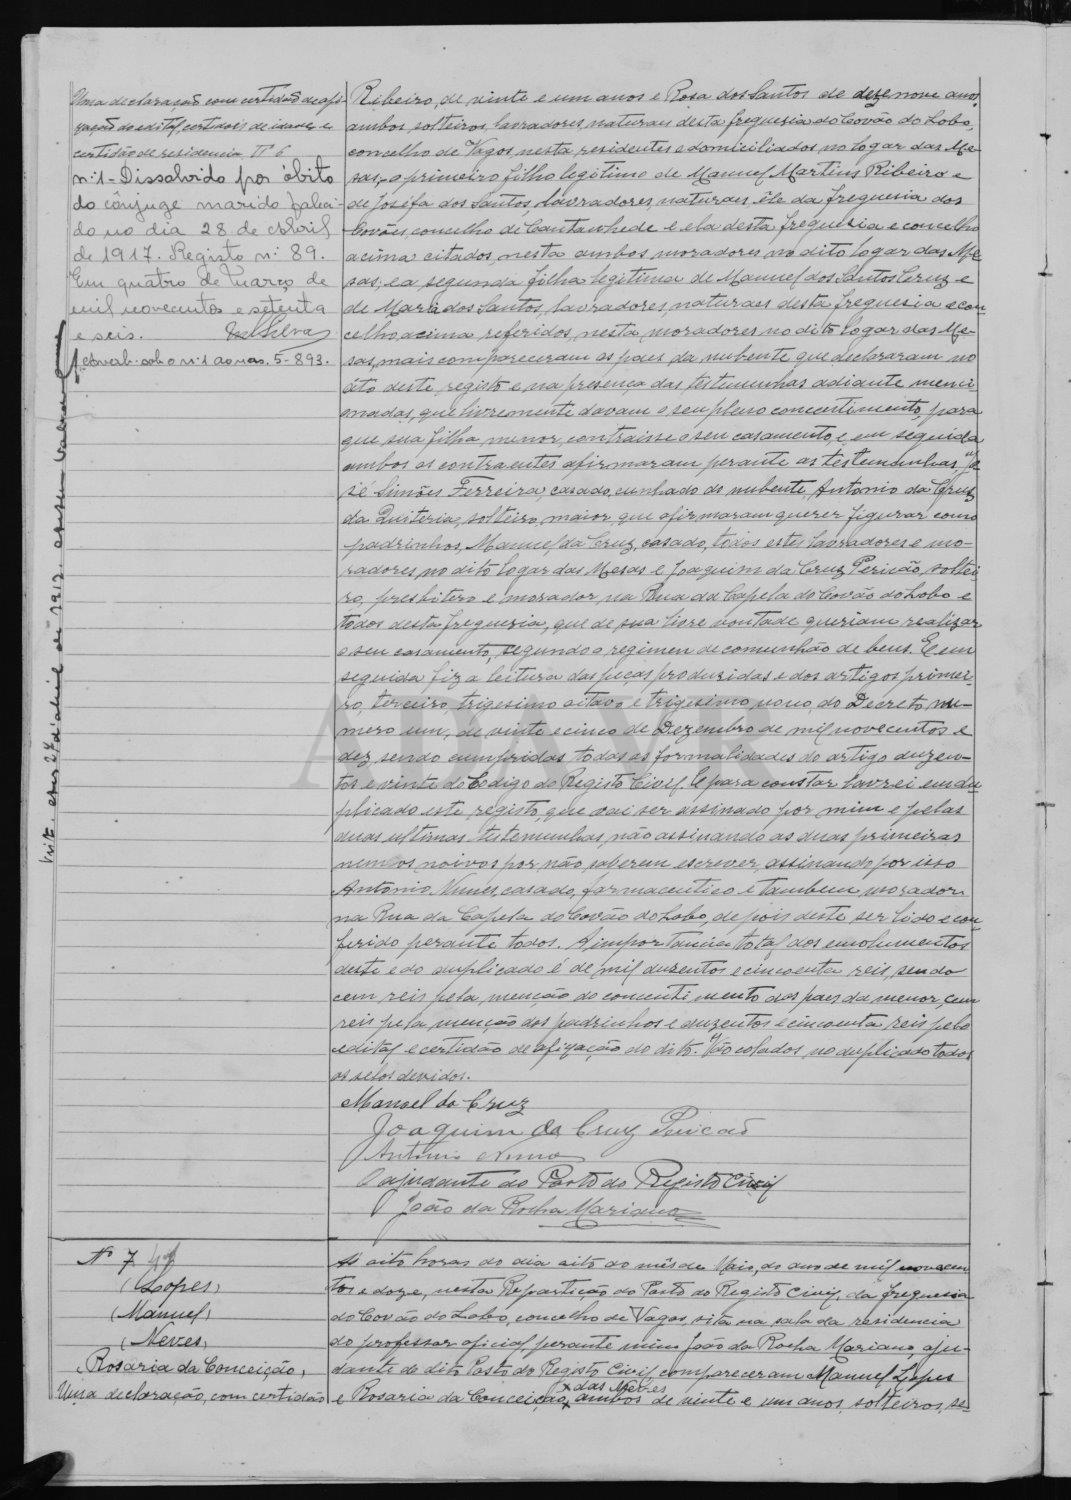 Uma declaração com certidão de afi-
xação do edital, certidões de idade e
certidão de residencia, nº 6
nº 1 - Dissolvido por óbito
do cônjuge marido faleci-
do no dia 28 de Abril
de 1917. Registo nº 89.
Em quatro de Março de
mil novecentos e setenta
e seis.
Averb. sob o nº 1 ao nas. 5-893.
Ribeiro, de vinte e um anos e Rosa dos Santos de dezenove anos,
ambos solteiros, lavradores, naturaes desta freguesia do Covão do Lobo,
concelho de Vagos, nesta residentes e domiciliados no logar das Me-
sas, - o primeiro filho legitimo de Manuel Martins Ribeiro e
de Josefa dos Santos, lavradores, naturaes, êle da freguesia dos
Covões, concelho de Cantanhede e ela desta freguesia e concelho
acima citados, nesta ambos moradores no dito logar das Me-
sas; e a segunda filha legitima de Manuel dos Santos Cruz e
de Maria dos Santos, lavradores, naturaes desta freguesia e con-
celho acima referidos, nesta moradores no dito logar das Me-
sas, mais compareceram os paes da nubente que declararam no
áto deste registo e na presença das testemunhas adiante menci-
onadas, que livremente davam o seu pleno concentimento, para
que sua filha, menor, contraisse o seu casamento, e em seguida
ambos os contraentes afirmaram perante as testemunhas, Jo-
sé Simões Ferreira, casado, cunhado do nubente, Antonio da Cruz
da Quiteria, solteiro, maior, que afirmaram querer figurar como
padrinhos, Manuel da Cruz, casado, todos estes lavradores e mo-
radores no dito logar das Mesas e Joaquim da Cruz Pericão, soltei-
ro, presbitero e morador na Rua da Capela do Covão do Lobo e
todos desta freguesia, que de sua livre vontade queriam realizar
o seu casamento, segundo o regimen de comunhão de bens. E em
seguida fiz a leitura das peças produzidas e dos artigos primei-
ro, terceiro, trigesimo oitavo e trigesimo nono, do Decreto nu-
mero um, de vinte e cinco de Dezembro de mil novecentos e
dez, sendo cumpridas todas as formalidades do artigo duzen-
tos e vinte do Codigo do Registo Civil. E para constar lavrei em du-
plicado este registo, que vai ser assinado por mim e pelas
duas ultimas testemunhas, não assinando as duas primeiras
nem os noivos por não saberem escrever, assinando por isso
Antonio Nunes, casado, farmaceutico e tambem morador
na Rua da Capela do Covão do Lobo, depois deste ser lido e con-
ferido perante todos. A importancia total dos emolumentos
deste e do duplicado é de mil duzentos e cincoenta reis, sendo
cem reis pela menção do concentimento dos paes da menor, cem
reis pela menção dos padrinhos e duzentos e cincoenta reis pelo
edital e certidão de afixação do dito. Vão colados no duplicado todos
os selos devidos.
Manoel da Cruz
Joaquim da Cruz Pericão
Antonio Nunes
O ajudante do Posto do Registo Civil
João da Rocha Mariano
Nº 7
(Lopes)
(Manuel)
(Neves)
Rosária da Conceição,
Uma declaração, com certidão
Ás oito horas do dia oito do mês de Maio, do ano de mil novecen-
tos e doze, nesta Repartição do Posto do Registo Civil, da freguesia
do Covão do Lobo, concelho de Vagos, sita na sala da residencia
do professor oficial, perante mim João da Rocha Mariano, aju-
dante do dito Posto do Registo Civil, compareceram Manuel Lopes
x das Neves
e Rosaria da Conceição x ambos de vinte e um anos, solteiros, se-
ADAVR